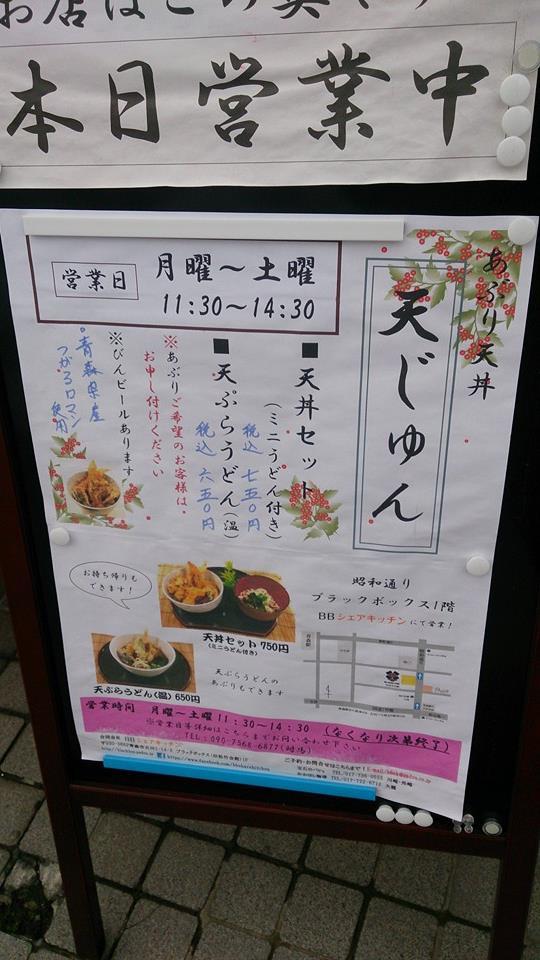 お店はこの奥です
本日営業中
あぶり天丼
天じゅん
営業日
月曜～土曜
11:30～14:30
■天丼セット
(ミニうどん付き)
税込 七五〇円
■天ぷらうどん(温)
税込 六五〇円
※あぶりご希望のお客様は、
お申し付けください
※びんビールあります
・青森県産
つがるロマン
使用
お持ち帰りも
できます!
天丼セット 750円
(ミニうどん付き)
天ぷらうどん(温) 650円
天ぷらうどんの
あぶりもできます
昭和通り
ブラックボックス1階
BBシェアキッチンにて営業!
営業時間 月曜～土曜 11:30～14:30 (なくなり次第終了)
※営業日等詳細はこちらまでお問い合わせ下さい
TEL:090-7568-6877
シェアキッチン
ご予約・お問合せはこちらまで!